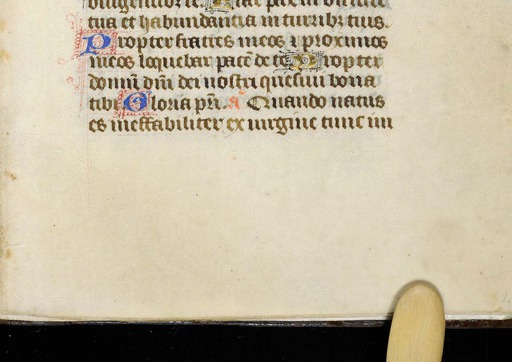 diligentibus te. Fiat pax in virtute
tua et habundantia in turribꝫ tuis.
Propter fratres meos ⁊ proximos
meos loquebar pacē de te. Propter
domū dn̄i dei nostri quesiui bona
tibi Gloria pr̄i. a̅ Quando natus
es ineffabiliter ex uirgine tunc im